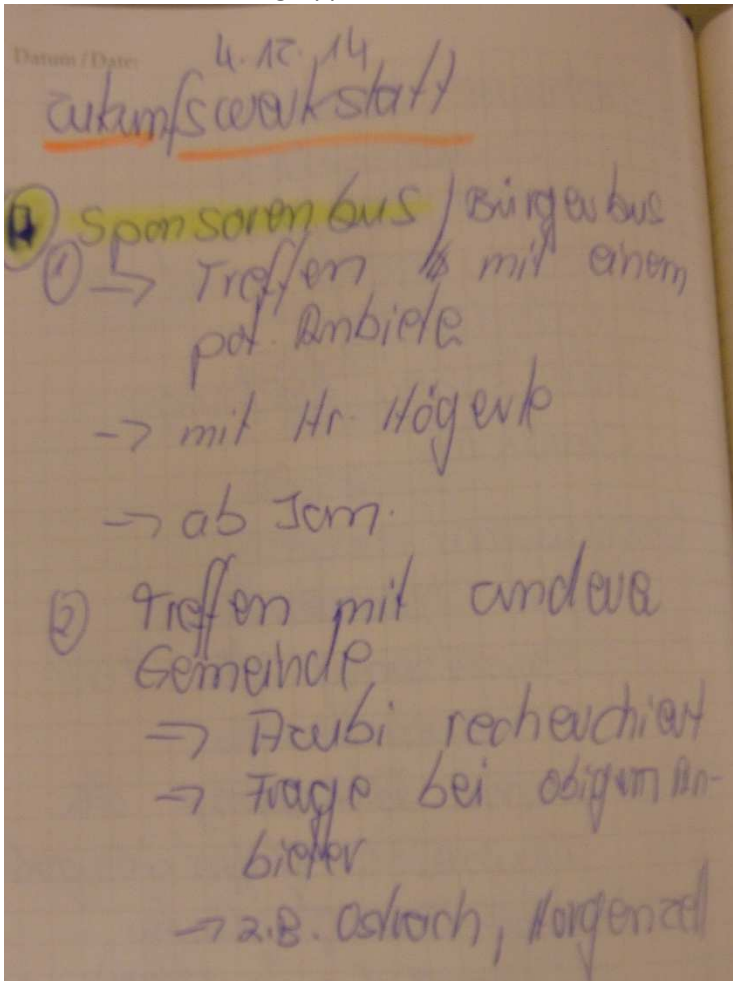 Datum / Date: 4.12.14
Zukunfswerkstatt
Sponsorenbus / Bürgerbus
① → Treffen mit einem
pot. Anbieter
→ mit Hr. Högerle
→ ab Jan.
② Treffen mit anderer
Gemeinde
→ Azubi recherchiert
→ Frage bei obigem An-
bieter
→ z.B. Ostrach, Horgenzell